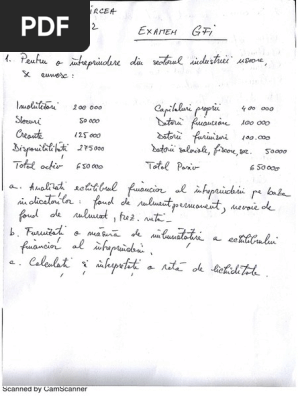 PDF
MIRCEA
2
EXAMEN GFi
1. Pentru o întreprindere din sectorul industriei usoare,
se cunosc:
Imobilizări 200 000 Capitaluri proprii 400 000
Stocuri 50 000 Datorii financiare 100 000
Creanțe 125 000 Datorii furnizori 100.000
Disponibilități 275000 Datorii salariale, fiscale, soc. 50000
Total activ 650000 Total Pasiv 650000
a. Analizați echilibrul financiar al întreprinderii pe baza
indicatorilor: fond de rulment permanent, nevoie de
fond de rulment, trez. netă
b. Furnizați o măsură de îmbunătățire a echilibrului
financiar al întreprinderii.
c. Calculați și interpretați o rată de lichiditate.
Scanned by CamScanner